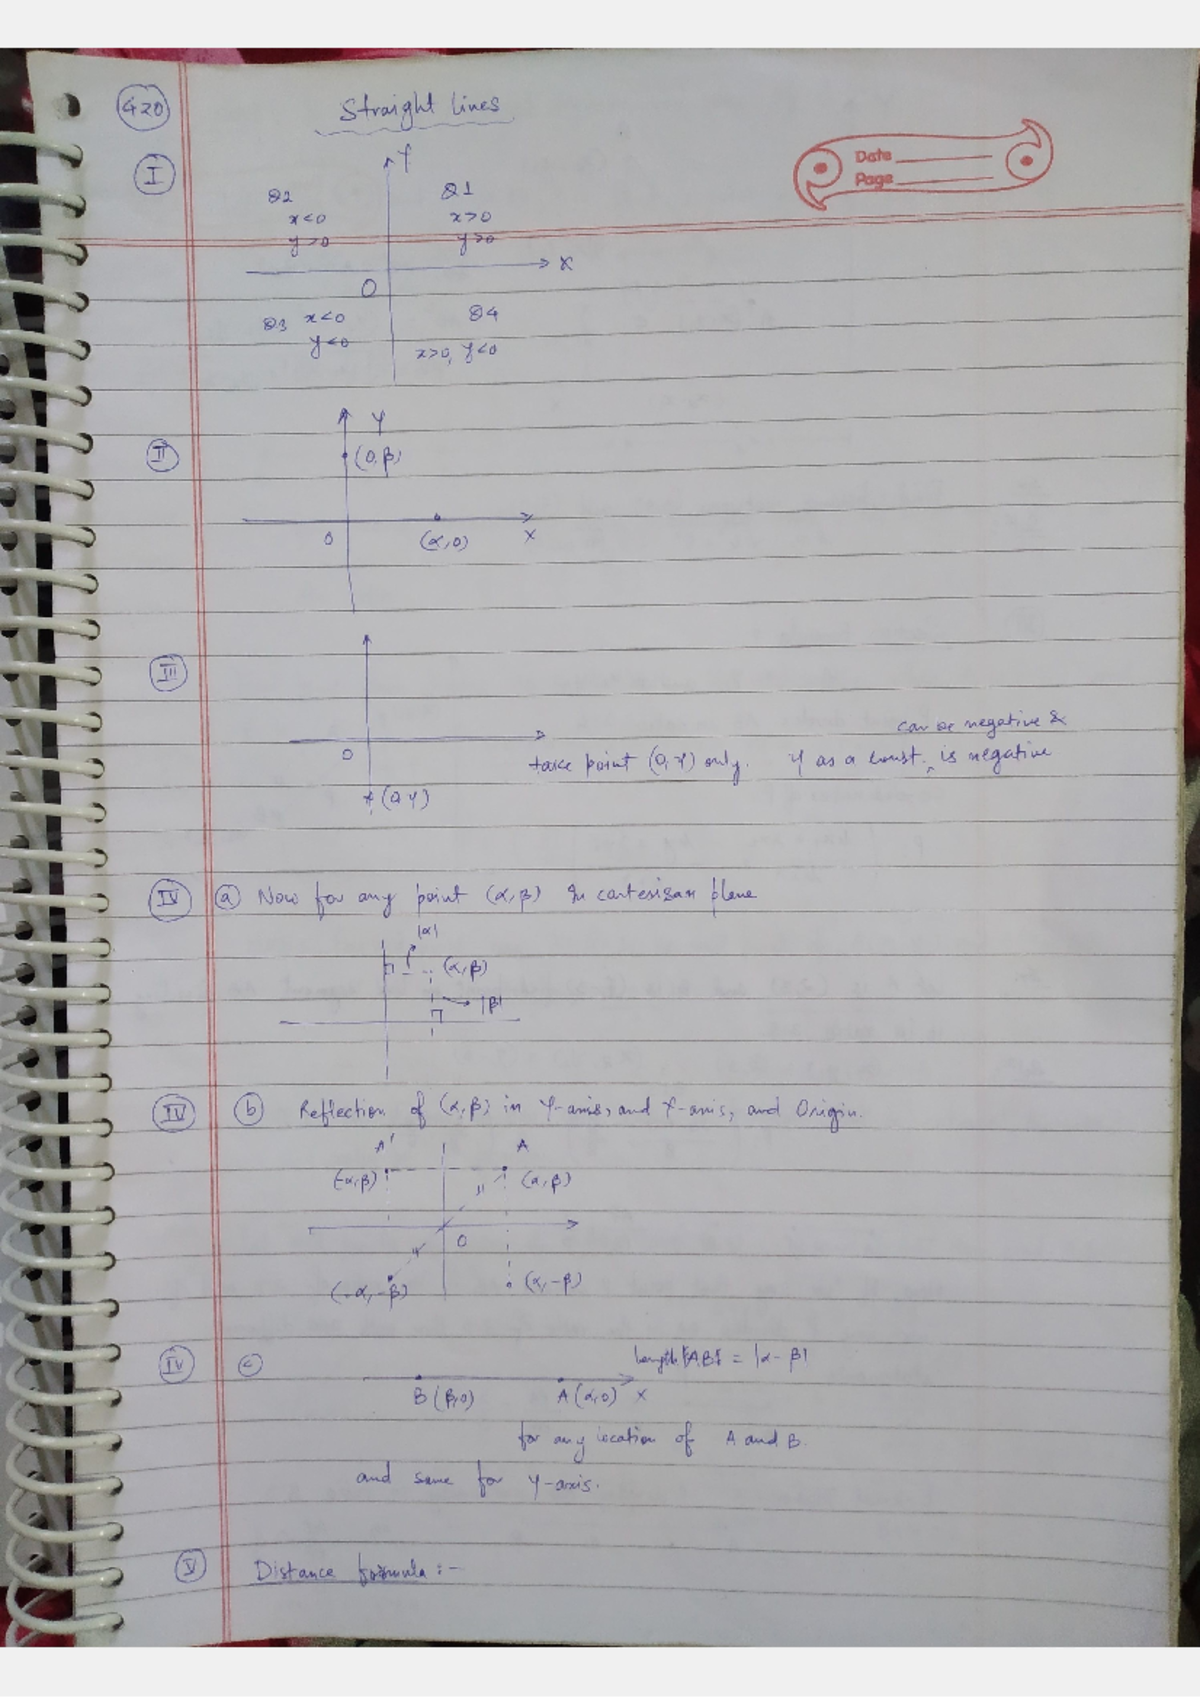 420
Straight lines
Date
Page
I
Y
Q2
x<0
y>0
Q1
x>0
y>0
X
O
Q3 x<0
y<0
Q4
x>0, y<0
II
Y
(0,β)
O
(α,0)
X
III
O
can be negative &
take point (0,Y) only. Y as a const. is negative
(0,Y)
IV a Now for any point (α,β) In cartesian plane
|α|
(α,β)
|β|
IV b Reflection of (α,β) in Y-axis, and X-axis, and Origin.
A'
A
(-α,β)
(α,β)
O
(-α,-β)
(α,-β)
IV c
length [AB] = |α-β|
B(β,0)
A(α,0)
X
for any location of A and B.
and same for Y-axis.
V Distance formula :-